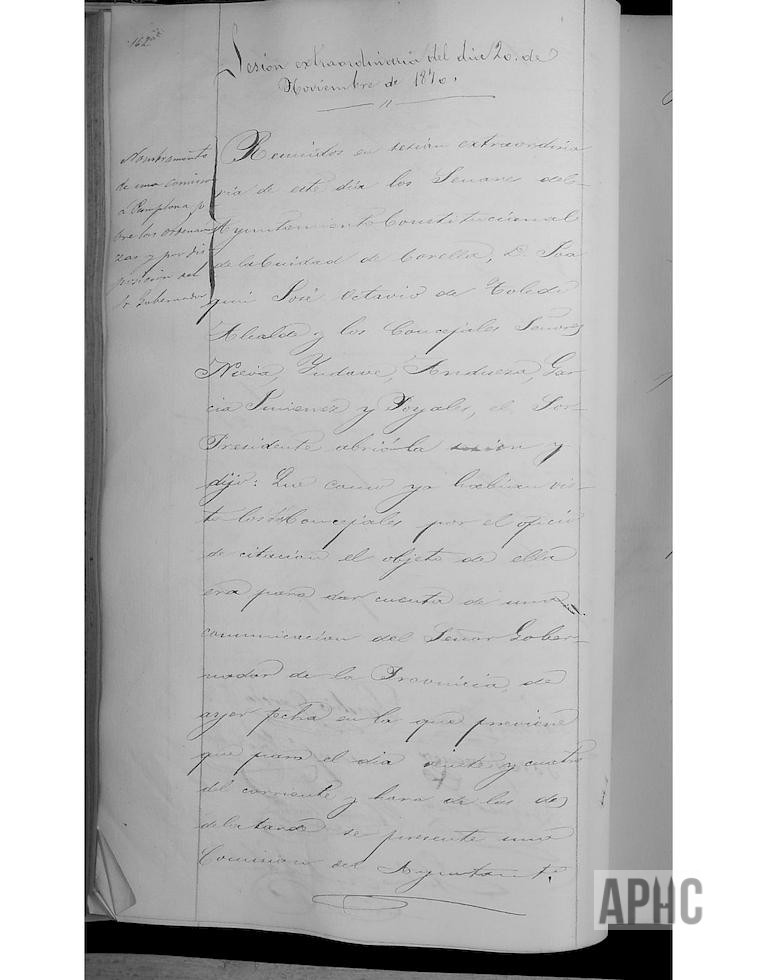 162
Sesión extraordinaria del dia 20. de
Noviembre de 1870.
Nombramiento
de una comision
a Pamplona so
bre las ordenan
zas y por dis
posicion del
Sr Gobernador
Reunidos en sesion extraordina
ria de este dia los Señores del
Ayuntamiento Constitucional
de la Cuidad de Corella, D. Joa
quin José Octavio de Toledo
Alcalde y los Concejales Señores
Nieva, Yudave, Andueza, Gar
cia Jimenez y Poyales, el Sor
Presidente abrió la sesion y
dijo: Que como ya habian vis-
to los Concejales por el oficio
de citacion el objeto de ella
era para dar cuenta de una
comunicacion del Señor Gober-
nador de la Provincia, de
ayer fecha en la que previene
que para el dia veinte y cuatro
del corriente y hora de las dos
de la tarde se presente una
Comision del Ayuntamto.
APHC